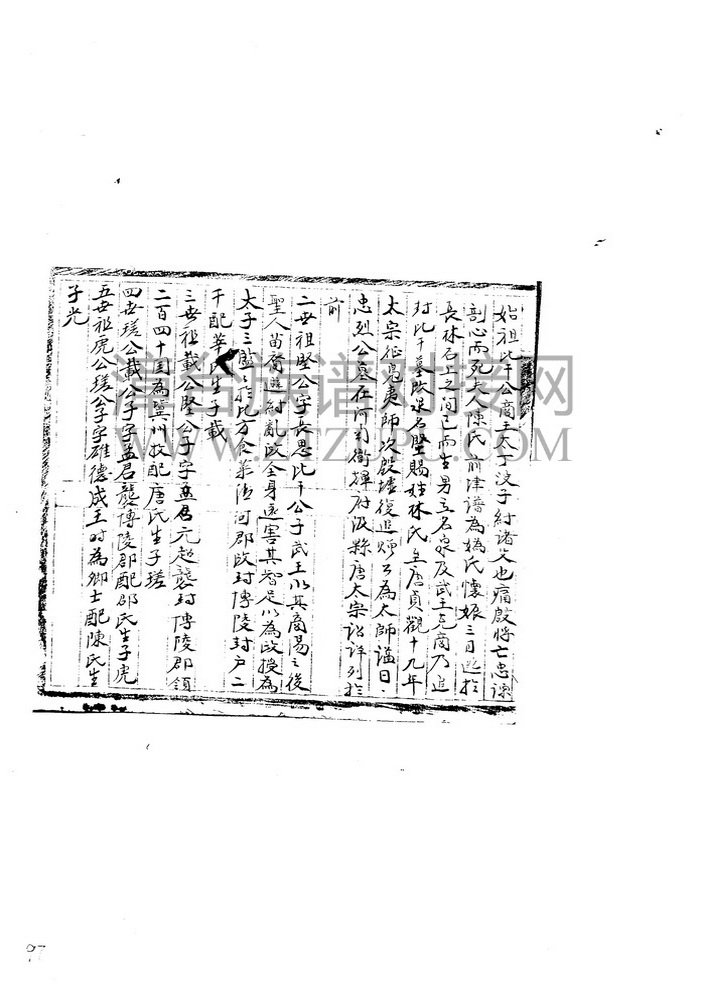 始祖比干公商王太丁次子紂諸父也痛殷將亡忠諫
剖心而死夫人陳氏 前津譜為媯氏 懷娠三月逃於
長林石上之間已而生男立名泉及武王克商乃追
封比干墓改泉名堅賜姓林氏至唐貞觀十九年
太宗征鬼夷師次殷墟復追贈公為太師謚曰
忠烈公墓在河南衛輝府汲縣唐太宗 詳列於
前
二世祖堅公字長思比干公子武王以其商湯之後
聖人苗裔遊紂亂政全身遠害其智足以為政授為
太子三監 於北方食菜清河郡改封博陵封户二
千配華氏生子載
三世祖載公堅公子字孟君元起襲封博陵郡領
二百四十國為冀州牧配唐氏生子瑳
四世瑳公載公子字孟君襲博陵郡配邵氏生子虎
五世祖虎公瑳公子字確德成王时為鄉士配陳氏生
子光
漳台族谱对接网
WWW.ZTZUPU.COM
97